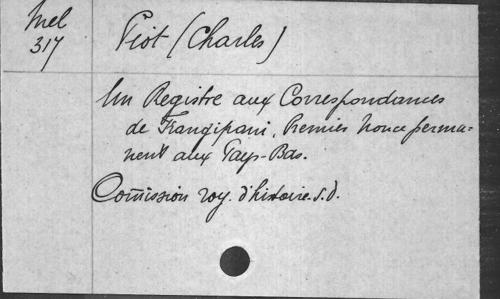 Mel
317
Piot (Charles)
Un Registre aux Correspondances
de Frangipani, Premier Nonce perma-
nent aux Pays-Bas.
Commission roy. d'histoire. s.d.